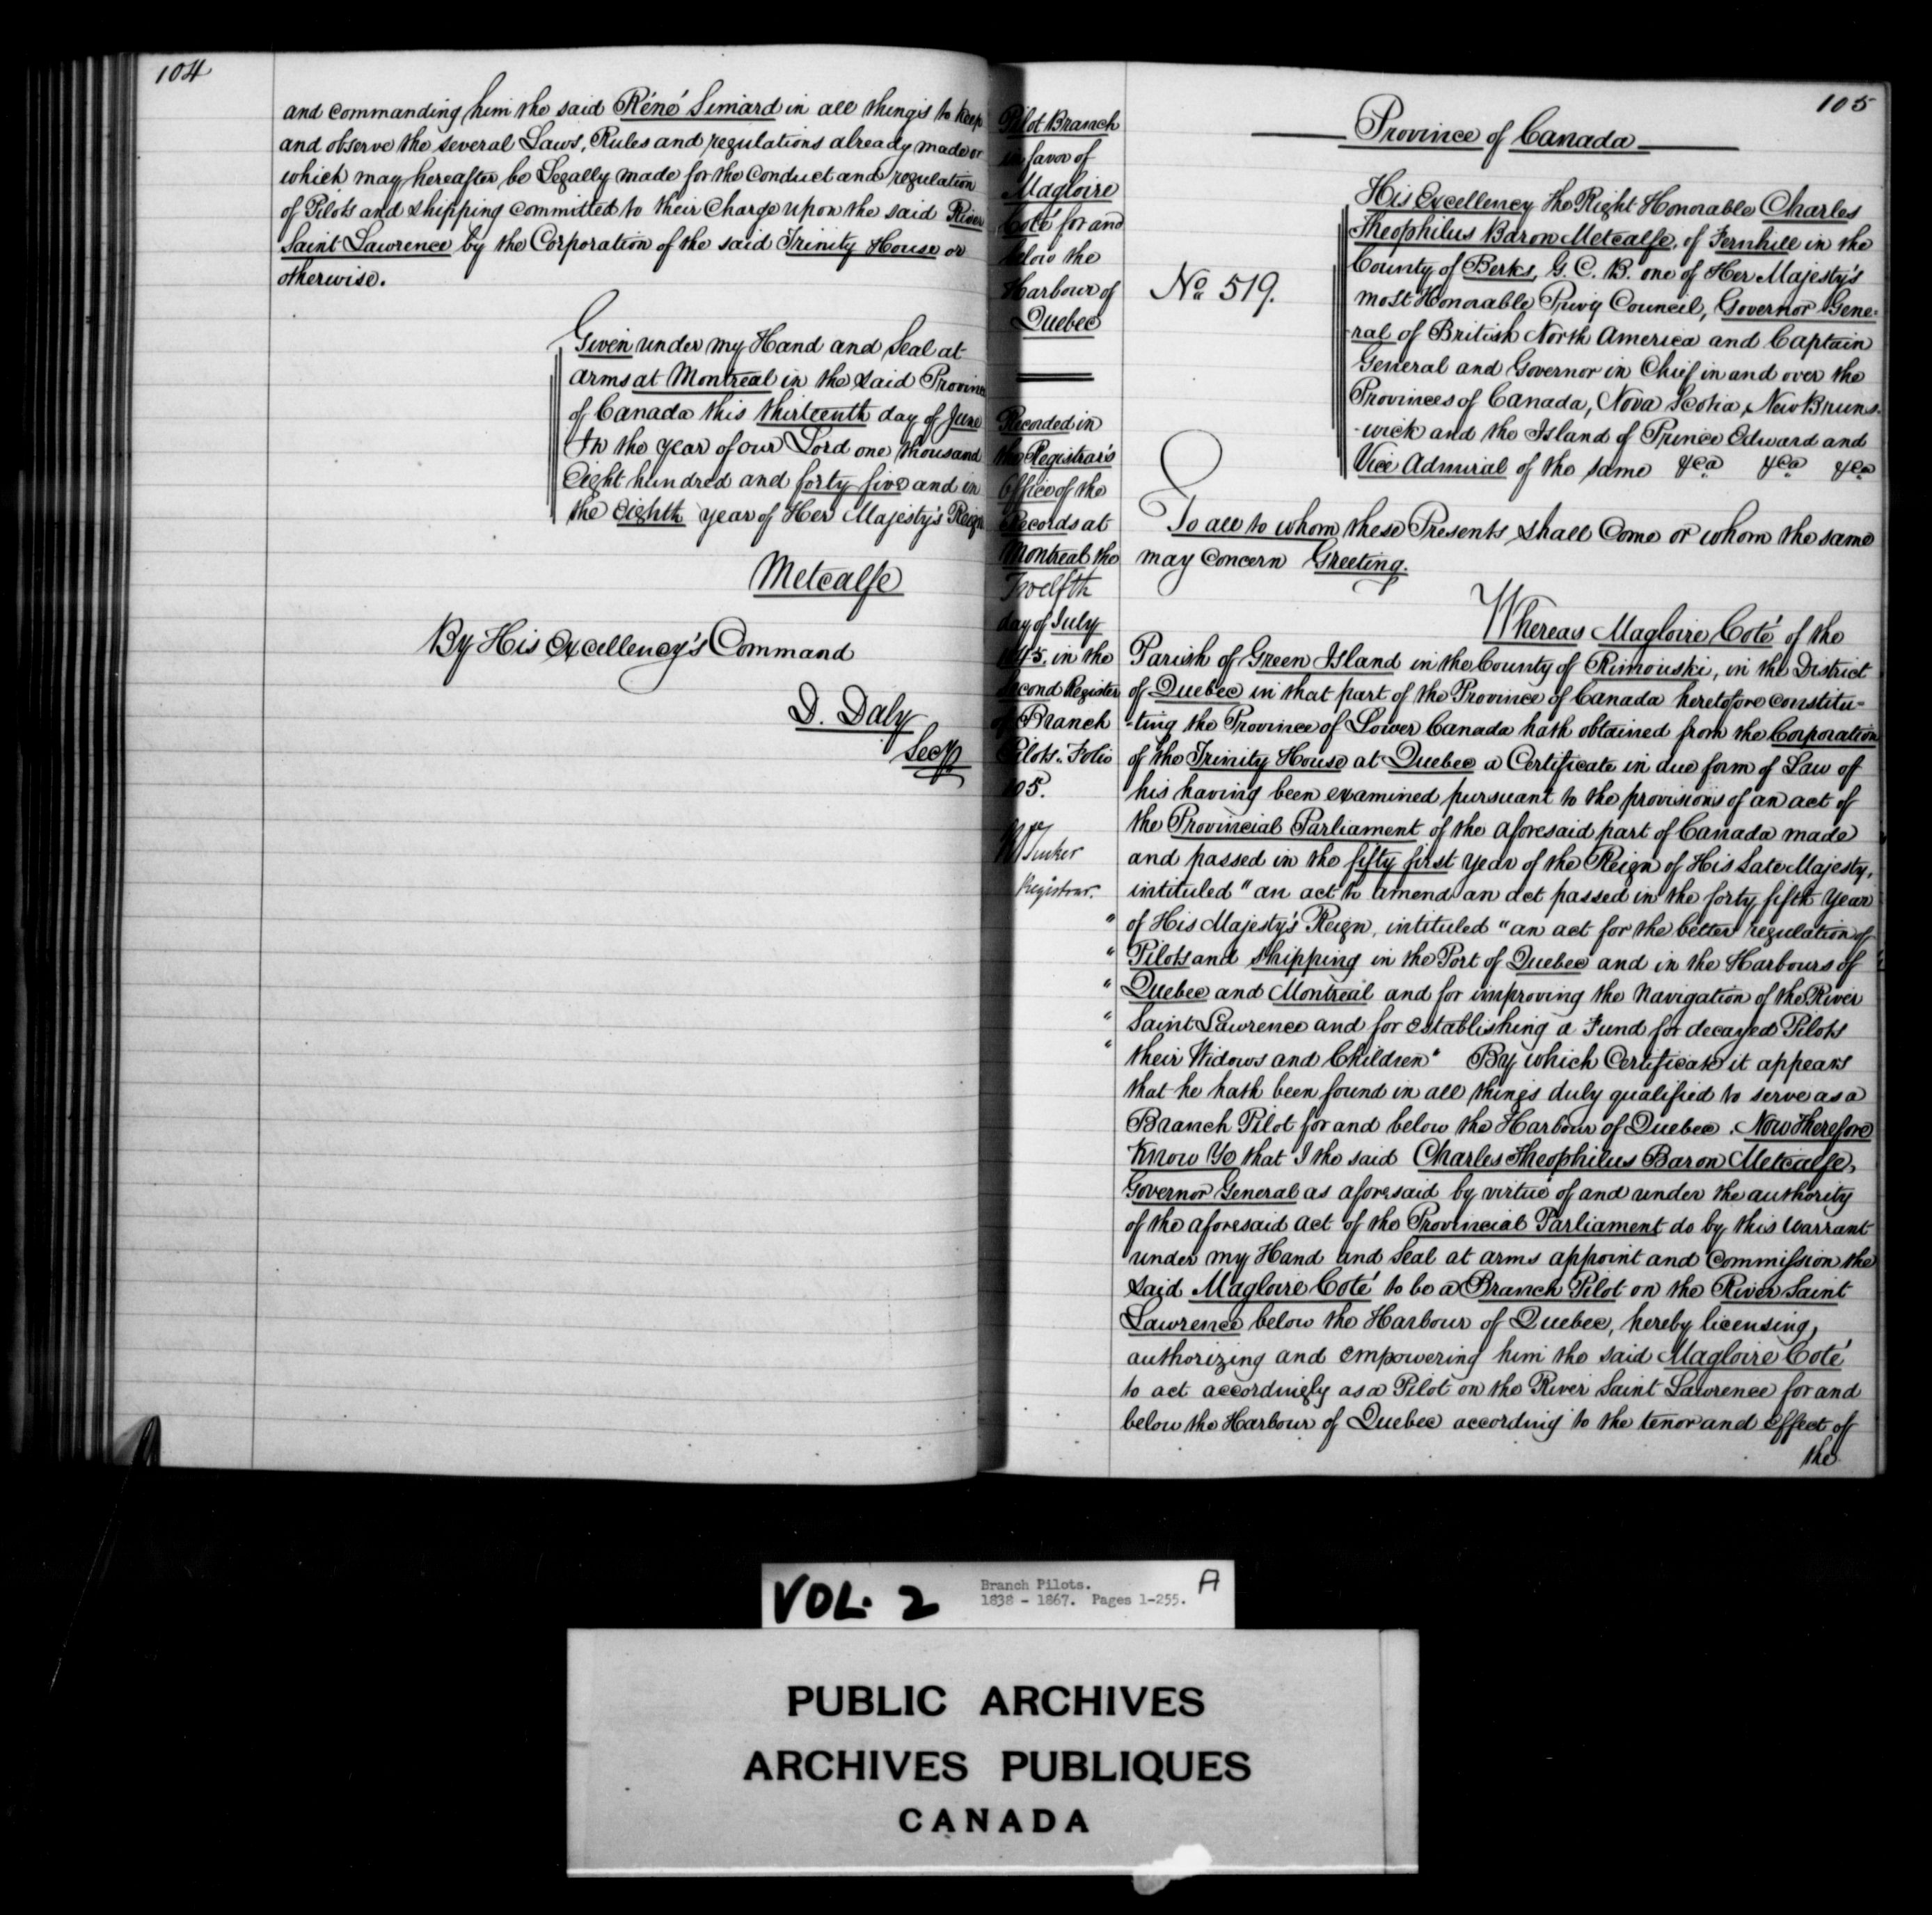 104
and commanding him the said Réné Simard in all things to keep
and observe the several Laws, Rules and regulations already made or
which may hereafter be Legally made for the Conduct and regulation
of Pilots and shipping committed to their Charge upon the said River
Saint Lawrence by the Corporation of the said Trinity House or
otherwise.
Given under my Hand and Seal at
arms at Montreal in the said Province
of Canada this thirteenth day of June
In the year of our Lord one thousand
Eight hundred and forty five and in
the Eighth year of Her Majesty's Reign
Metcalfe
By His Excellency's Command
D. Daly
Secy
105
Pilot Branch
in favor of
Magloire
Coté for and
below the
Harbour of
Quebec
Recorded in
the Registrar's
Office of the
Records at
Montreal the
Twelfth
day of July
1845. in the
Second Register
of Branch
Pilots. Folio
105.
Tucker
Registrar.
Province of Canada
No 519.
His Excellency the Right Honorable Charles
Theophilus Baron Metcalfe, of Fernhill in the
County of Berks, G. C. B. one of Her Majesty's
most Honorable Privy Council, Governor Gene-
ral of British North America and Captain
General and Governor in Chief in and over the
Provinces of Canada, Nova Scotia, New Bruns-
-wick and the Island of Prince Edward and
Vice Admiral of the same &ca &ca &ca
To all to whom these Presents shall Come or whom the same
may concern Greeting.
Whereas Magloire Coté of the
Parish of Green Island in the County of Rimouski, in the District
of Quebec in that part of the Province of Canada heretofore constitu-
-ting the Province of Lower Canada hath obtained from the Corporation
of the Trinity House at Quebec a Certificate in due form of Law of
his having been examined pursuant to the provisions of an act of
the Provincial Parliament of the aforesaid part of Canada made
and passed in the fifty first year of the Reign of His Late Majesty,
intituled "an act to amend an act passed in the forty fifth Year
" of His Majesty's Reign, intituled "an act for the better regulation of
" Pilots and shipping in the Port of Quebec and in the Harbours of
" Quebec and Montreal and for improving the Navigation of the River
" Saint Lawrence and for establishing a Fund for decayed Pilots
" their Widows and Children" By which Certificate it appears
that he hath been found in all things duly qualified to serve as a
Branch Pilot for and below the Harbour of Quebec. Now Therefore
Know Ye that I the said Charles Theophilus Baron Metcalfe,
Governor General as aforesaid by virtue of and under the authority
of the aforesaid act of the Provincial Parliament do by this warrant
under my Hand and Seal at arms appoint and Commission the
said Magloire Coté to be a Branch Pilot on the River Saint
Lawrence below the Harbour of Quebec, hereby licensing,
authorizing and empowering him the said Magloire Coté
to act accordingly as a Pilot on the River Saint Lawrence for and
below the Harbour of Quebec according to the tenor and Effect of
the
VOL. 2
Branch Pilots.
1838 - 1867. Pages 1-255.
A
PUBLIC ARCHIVES
ARCHIVES PUBLIQUES
CANADA